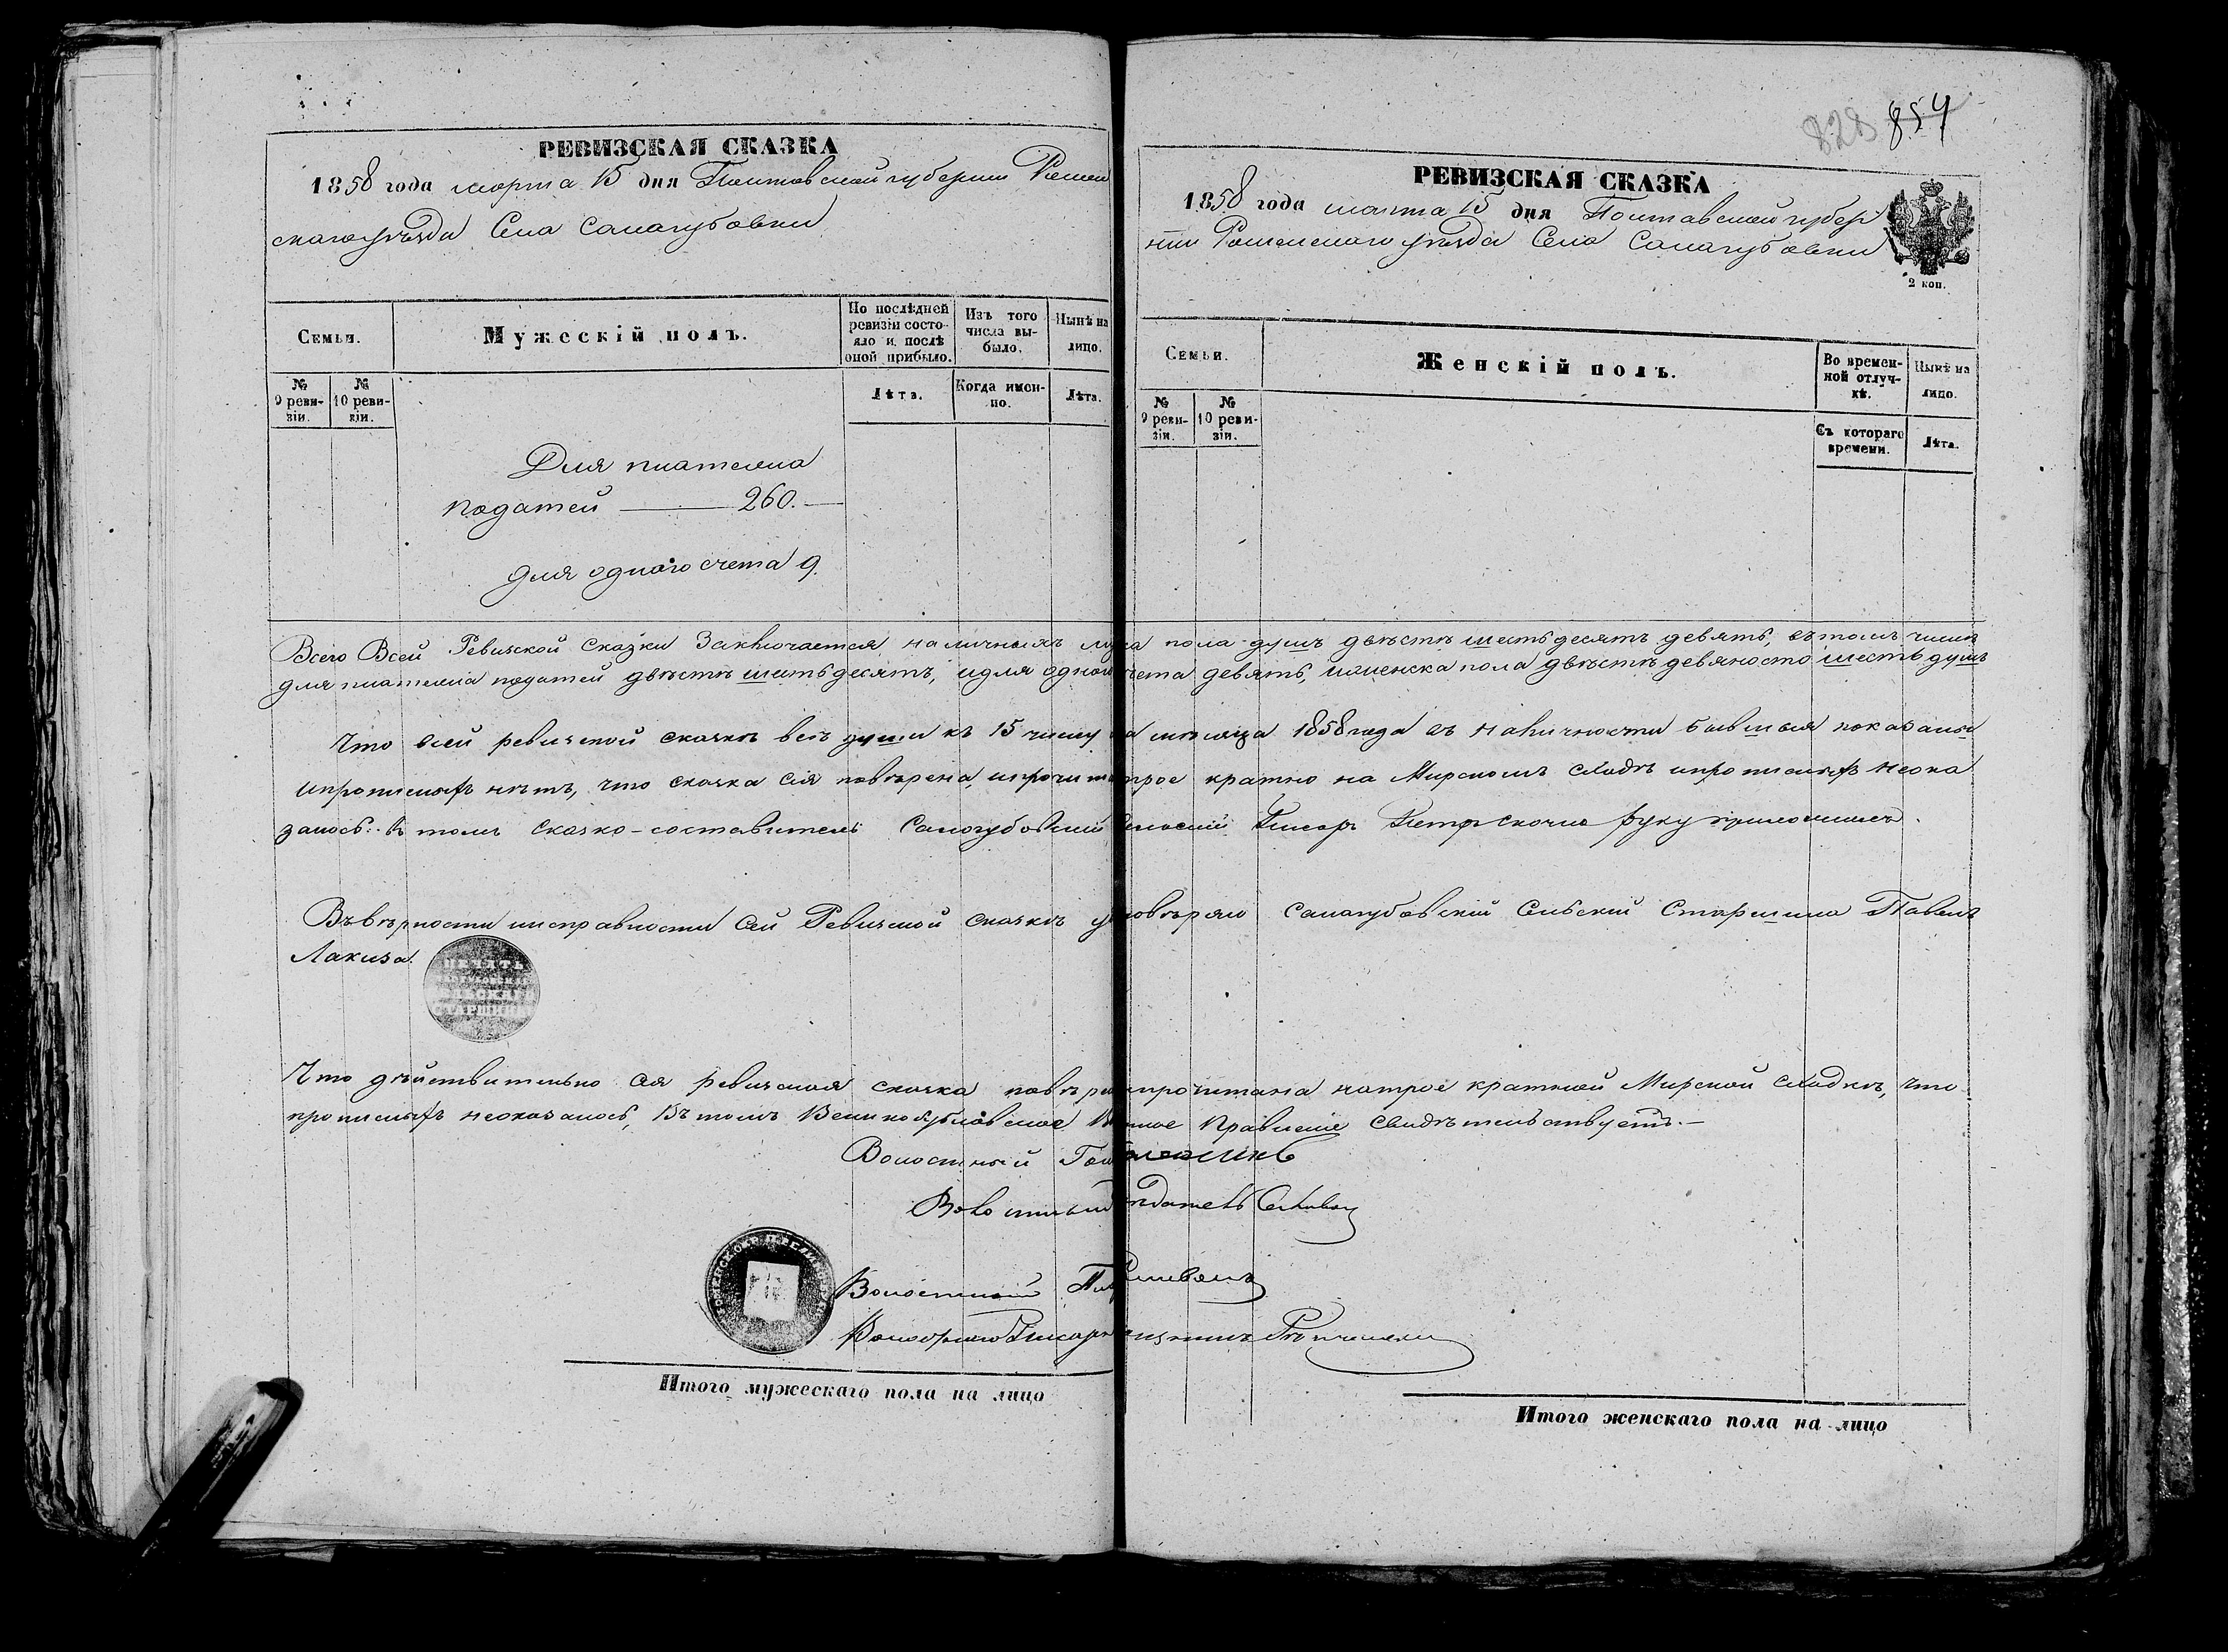 РЕВИЗСКАЯ СКАЗКА
1858 года марта 15 дня Полтавской губернии Ромен
скаго уѣзда Села Самагубовки
Семьи.
Мужескій полъ.
По послѣдней ревизіи состояло и послѣ оной прибыло.
Изъ того числа выбыло.
Нынѣ на лицо.
№ 9 ревизіи.
№ 10 ревизіи.
Лѣта.
Когда именно.
Лѣта.
Для платежа
податей — 260. —
для одного счета 9.
828 854
РЕВИЗСКАЯ СКАЗКА
1858 года марта 15 дня Полтавской губер
ніи Роменскаго уѣзда Села Самагубовки
2 коп.
Семьи.
Женскій полъ.
Во временной отлучкѣ.
Нынѣ на лицо.
№ 9 ревизіи.
№ 10 ревизіи.
Съ котораго времени.
Лѣта.
Всего Всей Ревизской Сказки Заключается наличныхъ пола душъ двѣстѣ шестьдесятъ девять, въ томъ числѣ
для платежа податей двѣстѣ шестьдесятъ, и для одного счета девять, и женска пола двѣстѣ девяносто шесть душъ
Что всей ревизской сказкѣ всѣ души къ 15 числу мѣсяца 1858 года въ наличности бывшыя показаны
и прописныхъ нѣтъ, что сказка сія повѣрена, и прочит трое кратно на Мирскомъ сходѣ и прописныхъ неока
залось: въ томъ сказко-составитель Самогубовский Писарь Петръ руку приложилъ.
Въ вѣрности и исправности сей Ревизской сказкѣ Самагубовскій Сельскій Старшина Павелъ
Лакиза.
ПЕЧАТЬ СЕЛЬСКАГО СТАРШИНЫ
Что дѣйствительно сія ревизская сказка повѣре прочитана на трое кратной Мирской сходкѣ, что
прописныхъ неоказалось, Въ томъ Великобубновское Правленіе свидѣтельствуетъ. —
Волостный
Волостный
Волостный
Волостнаго Писаря
Итого мужескаго пола на лицо
Итого женскаго пола на лицо